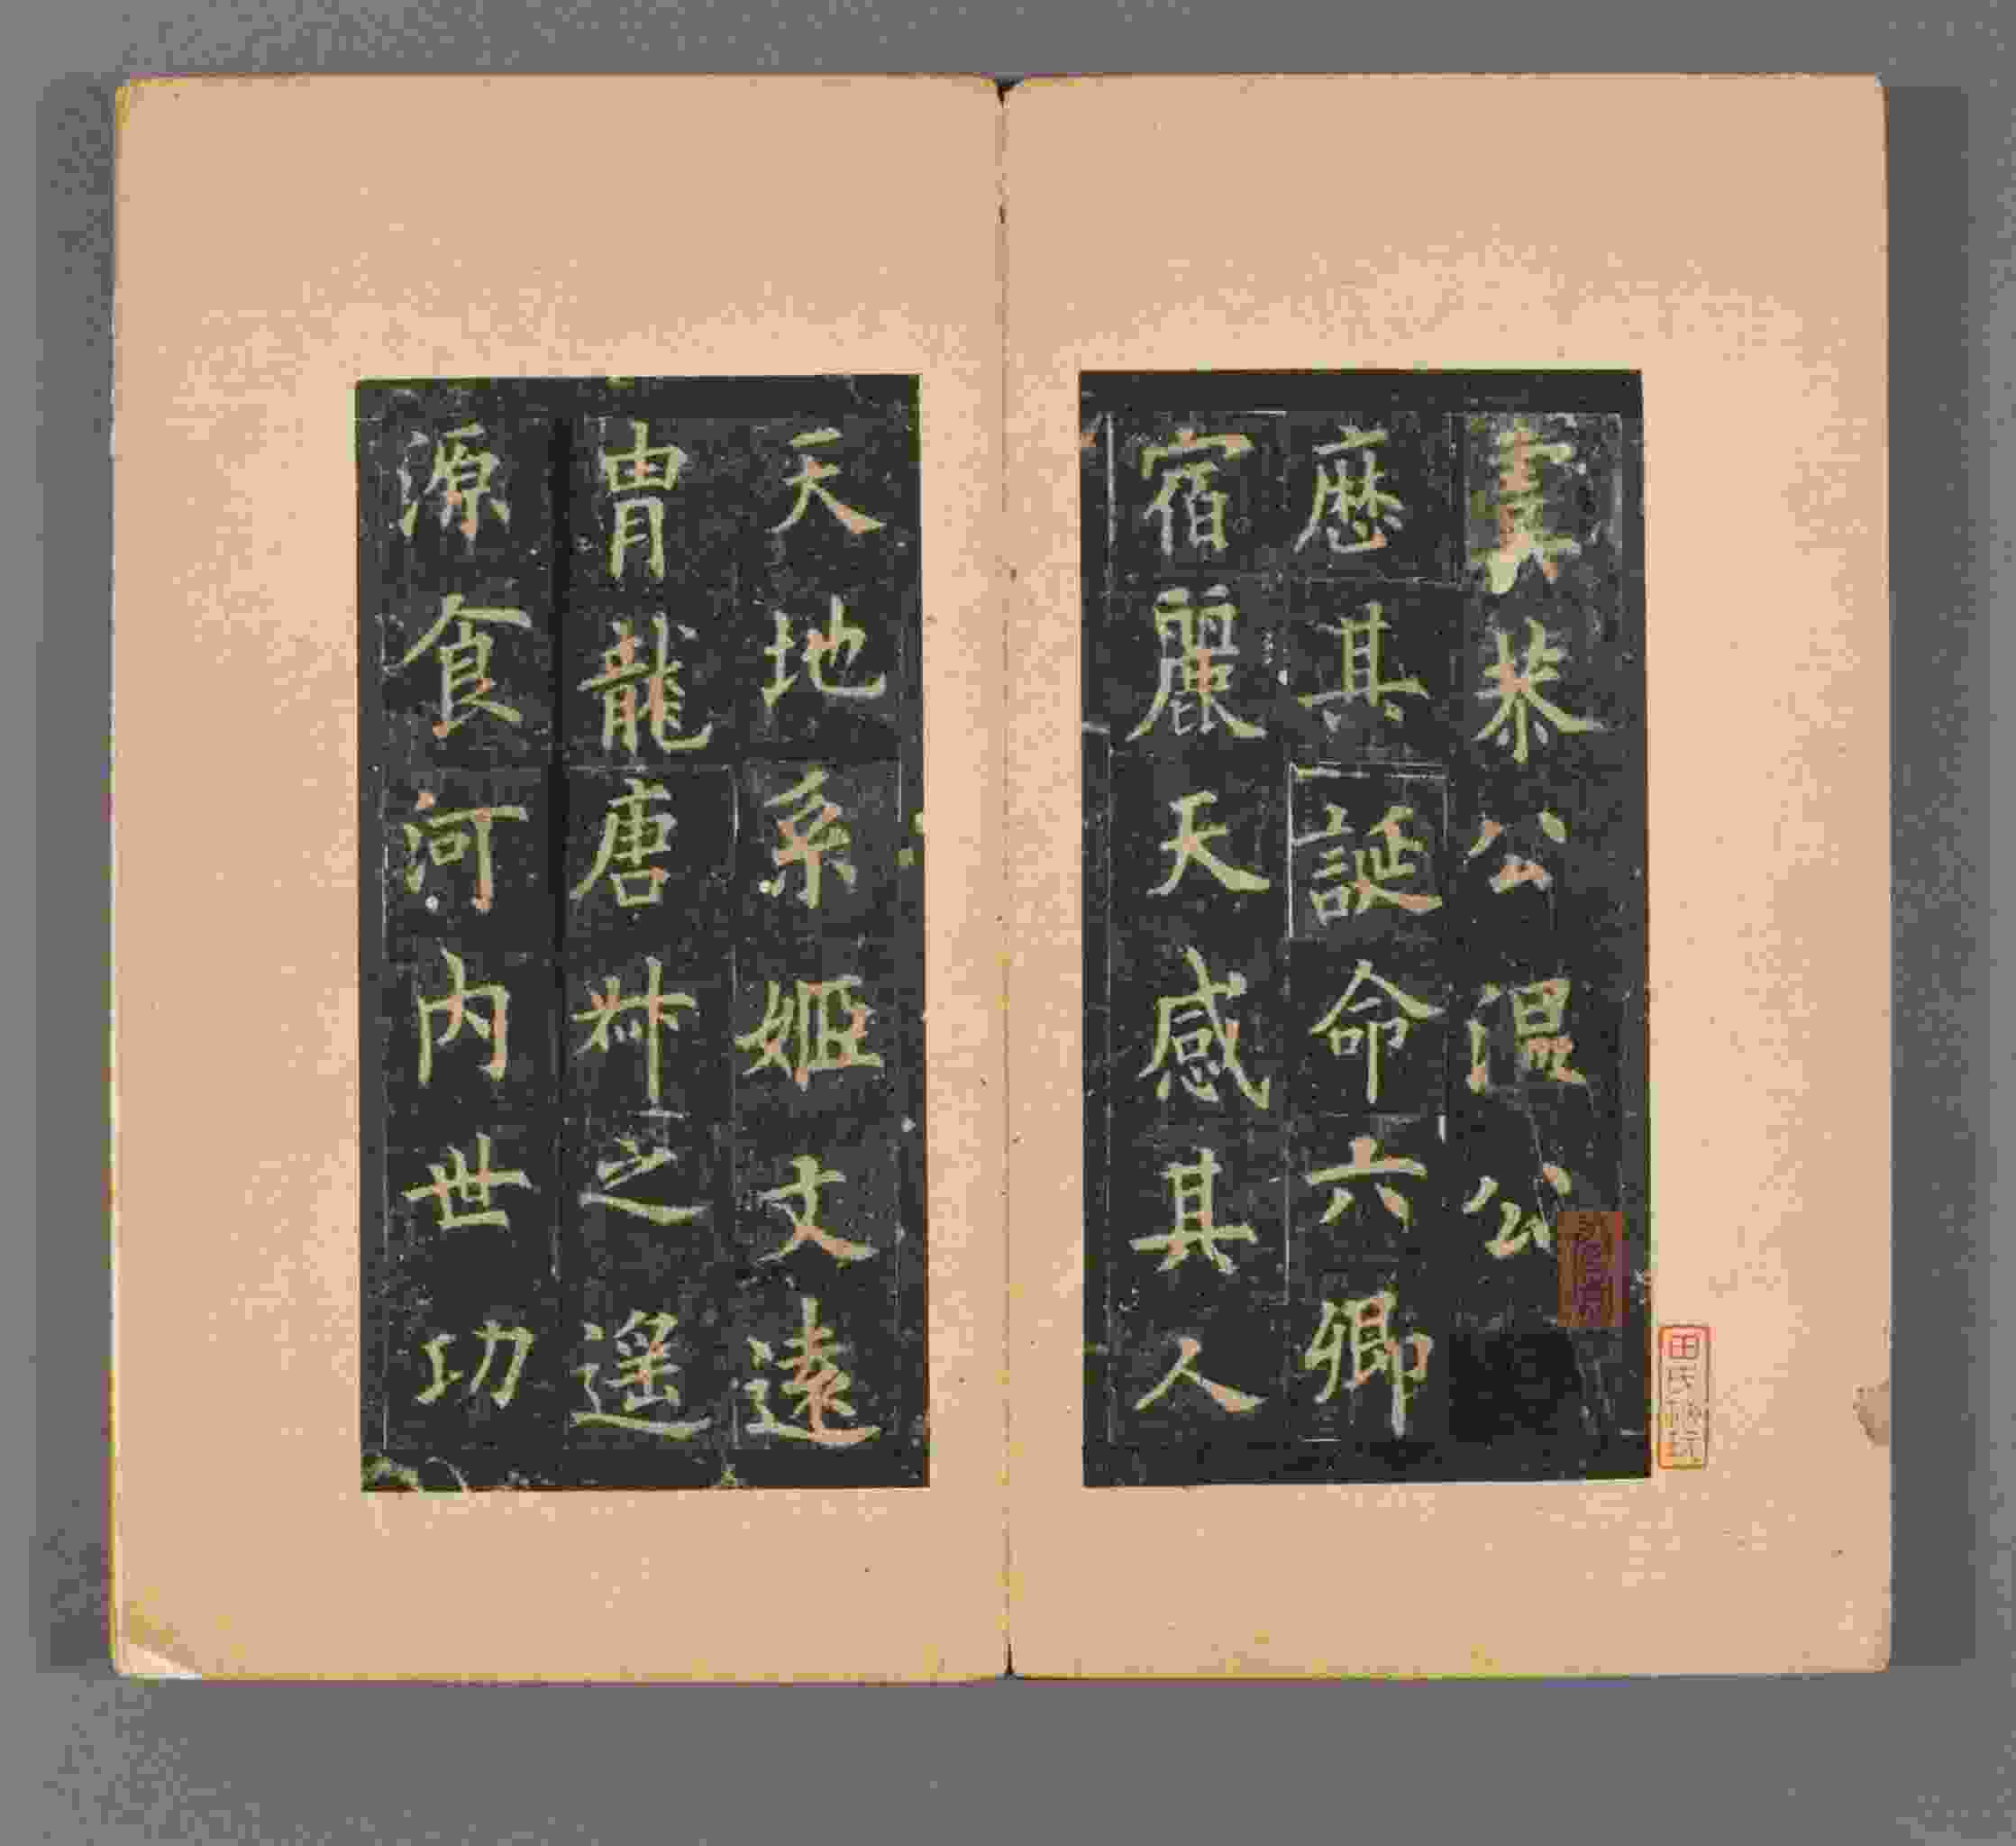 恭公溫公
歷其誕命六卿
宿麗天感其人
天地系姬文遠
胄龍唐叔之遥
源食河内世功